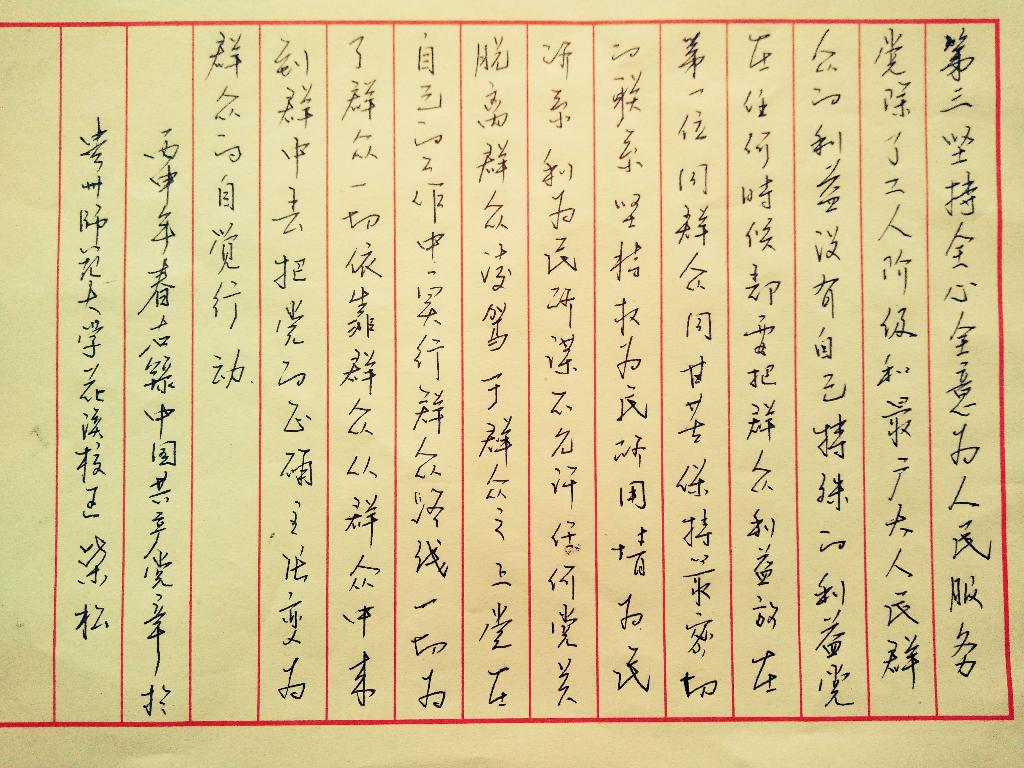 第三坚持全心全意为人民服务
党除了工人阶级和最广大人民群
众的利益没有自己特殊的利益党
在任何時候都要把群众利益放在
第一位同群众同甘共苦保持最密切
的联系坚持权为民所用情为民
所系利为民所谋不允许任何党员
脱离群众凌驾于群众之上党在
自己的工作中实行群众路线一切为
了群众一切依靠群众从群众中来
到群中去把党的正确主张变为
群众的自觉行动
丙申年春右錄中国共产党章於
贵州师范大学花溪校 荣松